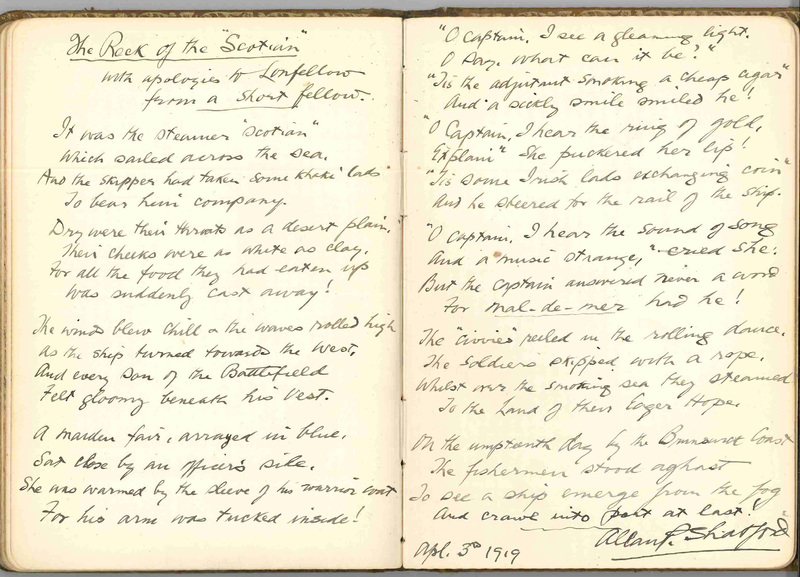 The Reek of the "Scotian"
with apologies to Lonfellow
form a Short fellow.
It was the steamer "Scotian"
Which sailed across the sea.
And the skipper had taken some khaki lads
To bear him company.
Dry were their throats as a desert plain,
Their cheeks were as white as clay,
For all the food they had eaten up
Was suddenly cast away!
The winds blew chill & the waves rolled high
As the ship turned towards the West,
And every son of the Battlefield
Felt gloomy beneath his Vest.
A maiden fair, arrayed in blue,
Sat close by an officer's side.
She was warmed by the sleeve of his warrior coat
For his arm was tucked inside!
"O Captain, I see a gleaming light.
O Say, what can it be?"
"Tis the adjutant smoking a cheap cigar"
And a sickly smile smiled he!
"O Captain, I hear the ring of gold,
Explain" She puckered her lip!
"Tis some Irish lads exchanging coin"
And he steered for the rail of the ship.
"O Captain, I hear the sound of song
And a music strange," cried She:
But the Captain answered never a word
For mal-de-mer had he!
The "civvies" reeled in the rolling dance,
The Soldiers skipped with a rope,
Whilst over the smoking sea they steamed
To the Land of their Eager Hope.
On the umpteenth day by the Brunswick Coast
The fishermen stood aghast
To see a ship emerge from the fog
And crawl into port at last!
Allan P. Shatford
Apl. 3rd 1919